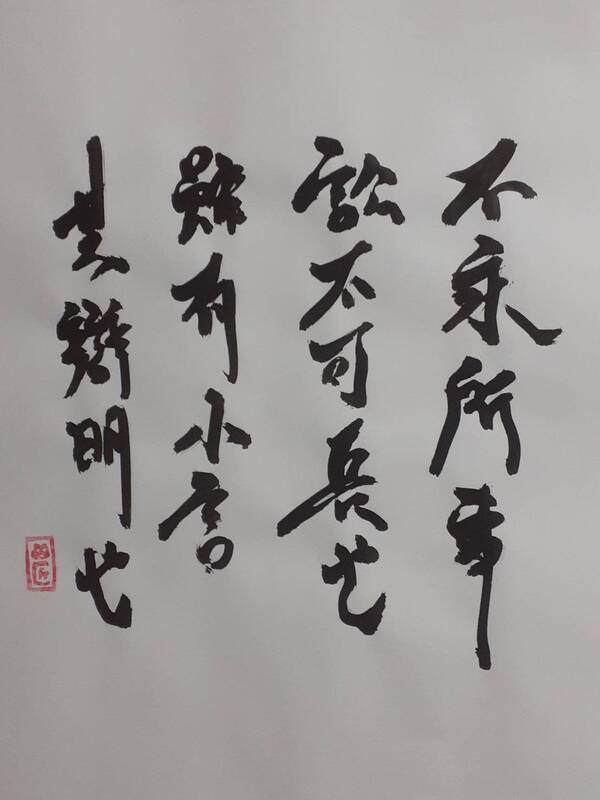 不永所事
訟不可長也
雖有小言
其辯明也